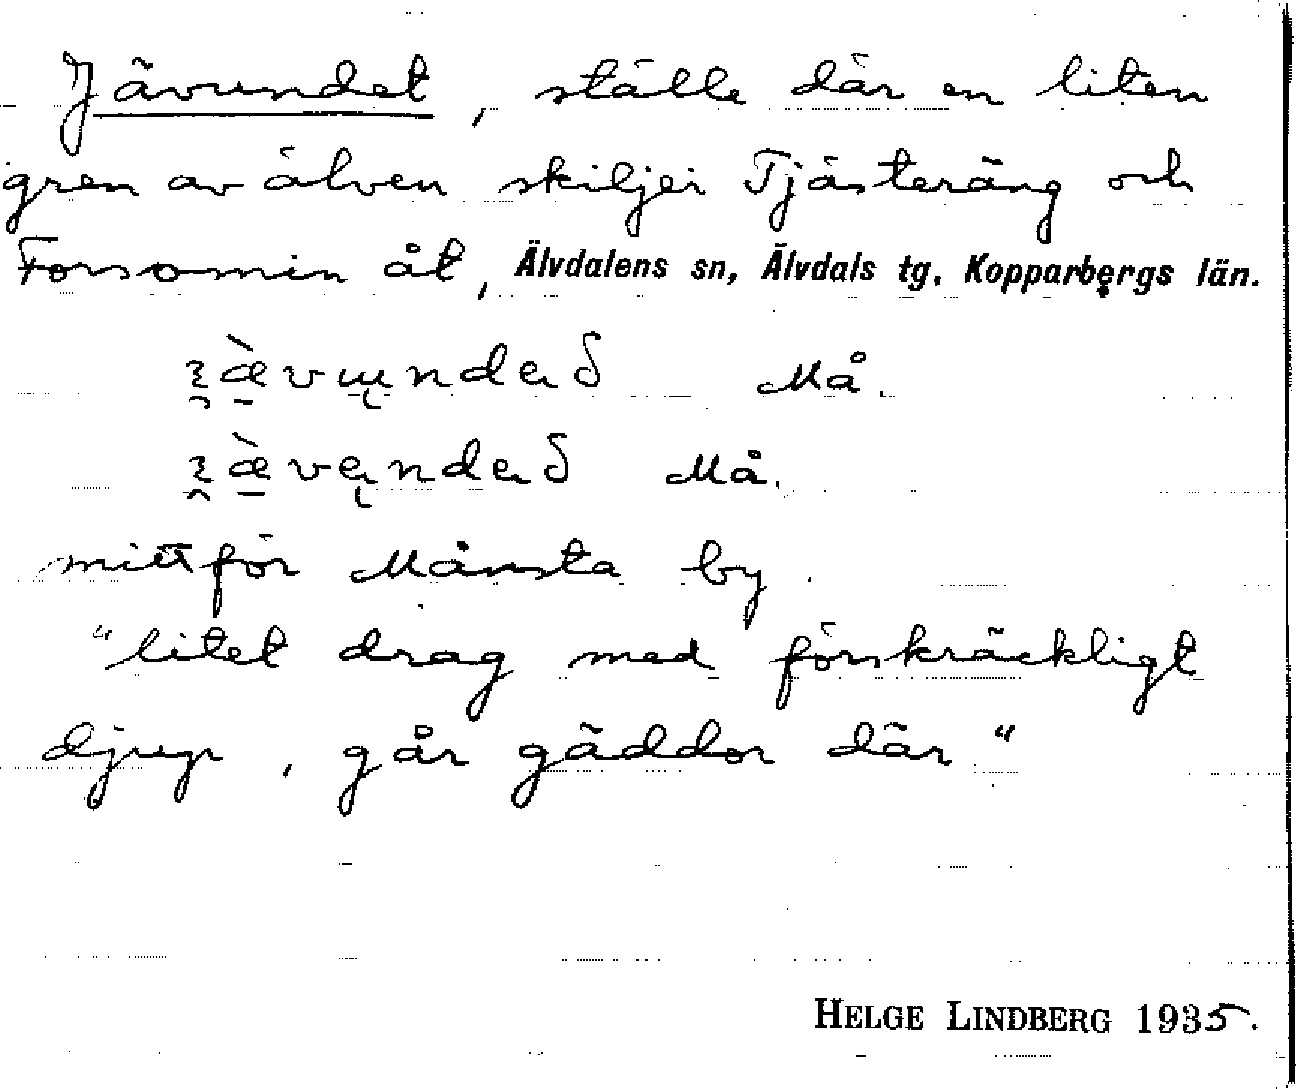 Jävundet, ställe där en liten
gren av älven skiljer Tjästeräng och
Forsomin åt, Älvdalens sn, Älvdals tg. Kopparbergs län.
Må.
Må.
mittför Månsta by.
"litet drag med förskräckligt
djup, går gäddor där"
HELGE LINDBERG 1935.